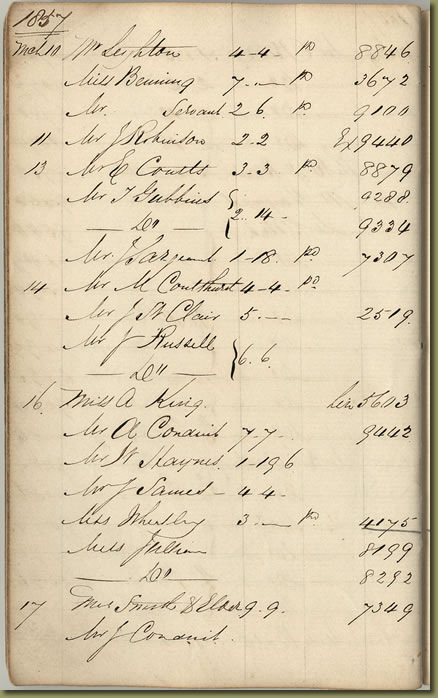 1857
Mch 10 Mr Leighton 4-4- pd 8846
Miss Benning 7.-- pd 3672
Mr. Servant 2 6. pd 9100
11 Mr J Robinson 2-2 9440
13 Mr E Coutts 3-3 pd 8879
Mr T Gubbins 9288
— Do — 2. 14 - 9334
Mr J Sargeant 1-18. pd 7307
14 Mr M Coulthurst 4-4- pd
Mr J St Clair 5.-- 2519.
Mr J Russell
— Do — 6.6.
16. Miss A King. 5603
Mr A Conduit 7-7- 9442
Mr W Haynes. 1-19 6
Mr J James - 4-4-
Wheatley 3.-- pd 4175
Miss 8199
— Do — 8292
17 Smith & Elder 9.9. 7349
Mr J Conduit.